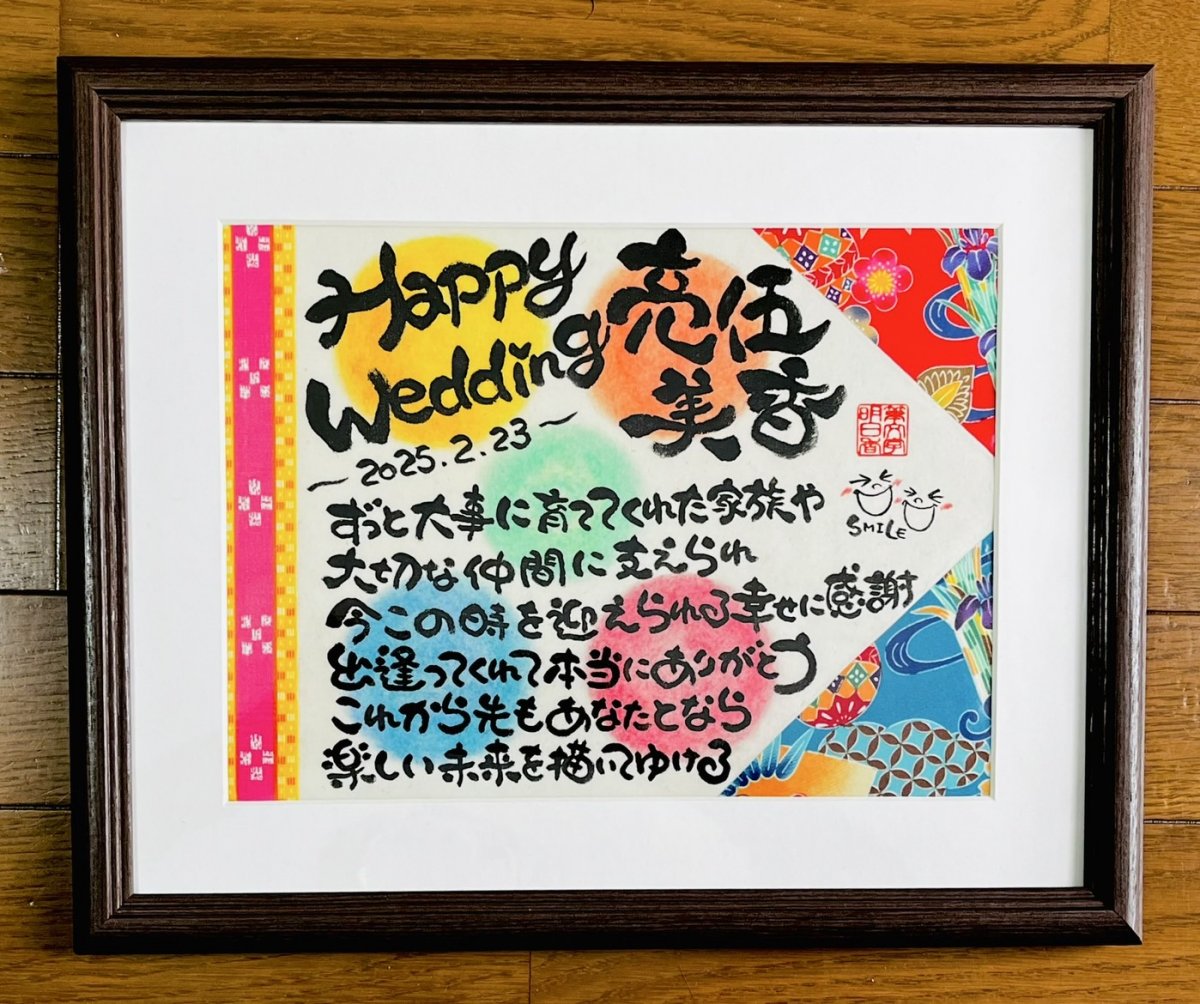 Happy
Wedding
亮伍
美香
~2025.2.23~
ずっと大事に育ててくれた家族や
大切な仲間に支えられ
今この時を迎えられる幸せに感謝
出逢ってくれて本当にありがとう
これから先もあなたとなら
楽しい未来を描いてゆける
筆文字
明日香
SMILE